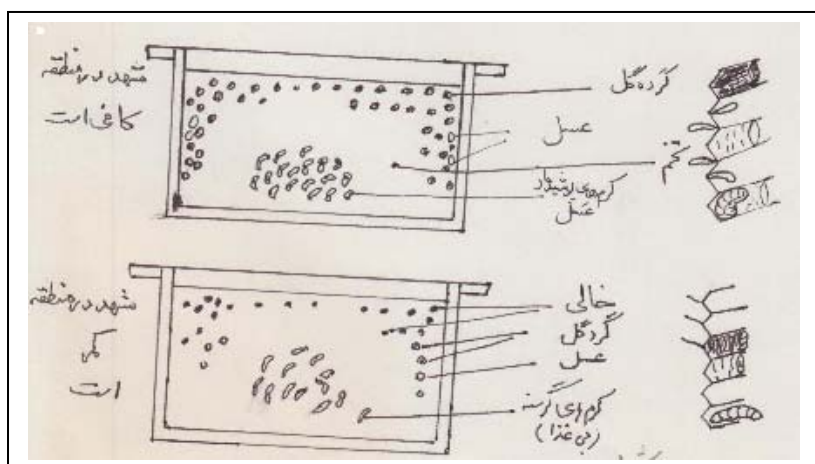 شهد در منطقه
کافی است
گرده گل
عسل
تخم
کرم‌های
عسل
شهد در منطقه
کم
است
خالی
گرد گل
عسل
کرم های گرسنه
(بی غذا)